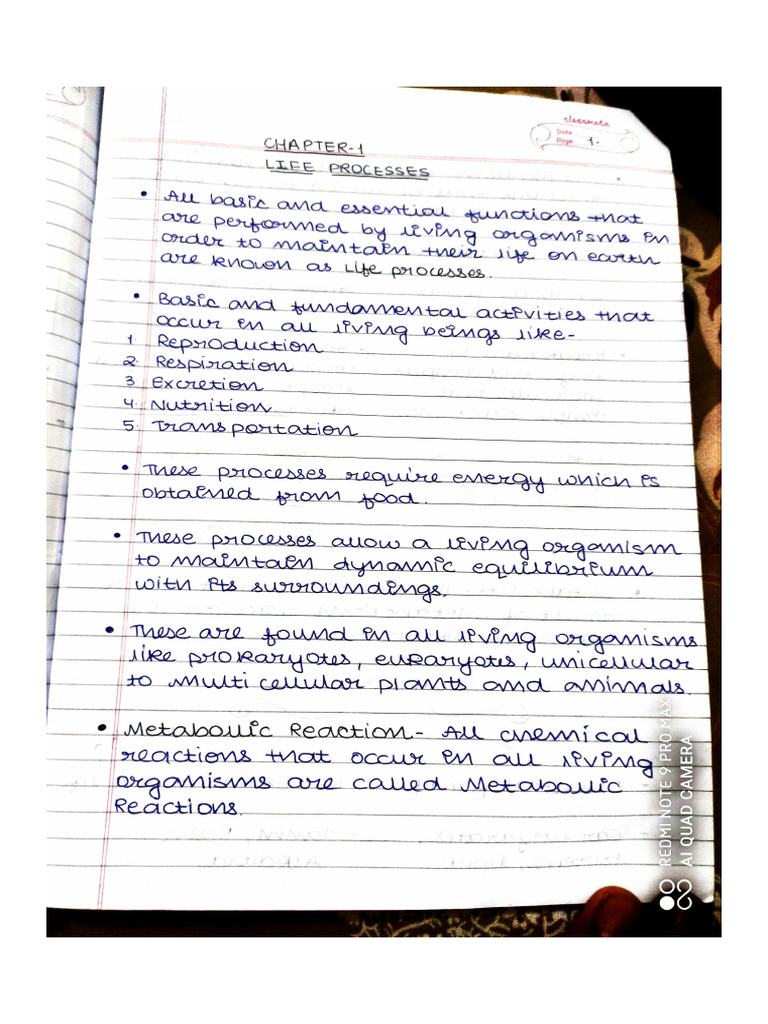 classmate
Date
Page 1.
CHAPTER-1
LIFE PROCESSES
• All basic and essential functions that
are performed by living organisms in
order to maintain their life on earth
are known as Life processes.
• Basic and fundamental activities that
occur in all living beings like-
1. Reproduction
2. Respiration
3 Excretion
4. Nutrition
5. Transportation
• These processes require energy which is
obtained from food.
• These processes allow a living organism
to maintain dynamic equilibrium
with its surroundings.
• These are found in all living organisms
like prokaryotes, eukaryotes, unicellular
to multicellular plants and animals.
• Metabolic Reaction- All chemical
reactions that occur in all living
organisms are called Metabolic
Reactions.
REDMI NOTE 9 PRO MAX
AI QUAD CAMERA